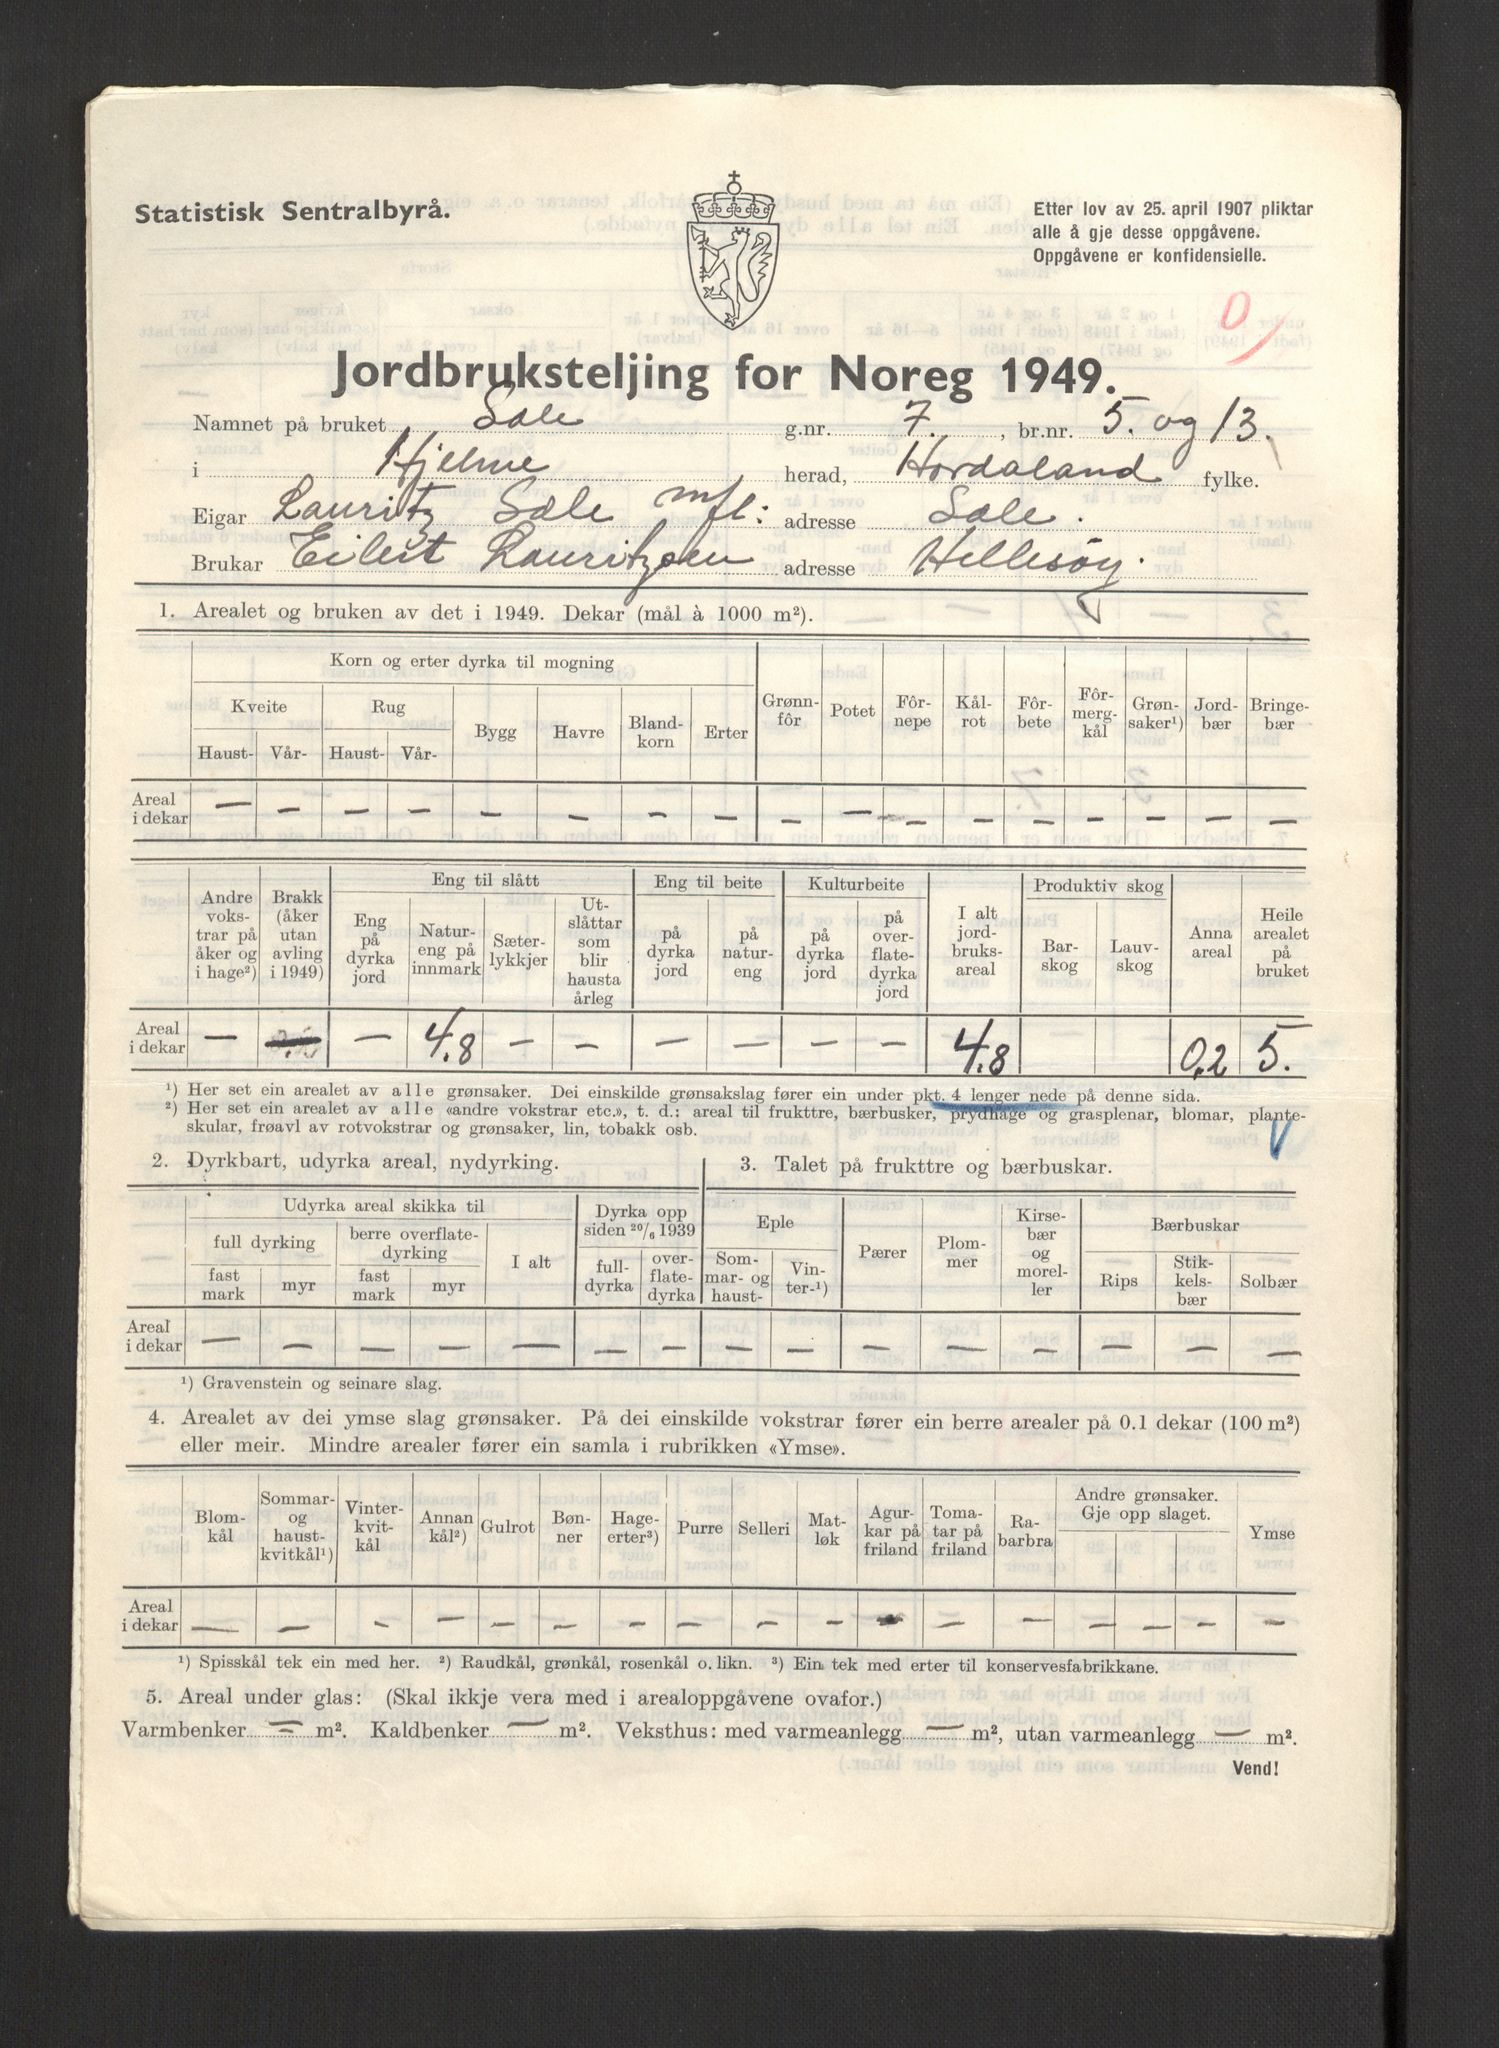 Statistisk Sentralbyrå.
Etter lov av 25. april 1907 pliktar
alle å gje desse oppgåvene.
Oppgåvene er konfidensielle.
0
Jordbruksteljing for Noreg 1949.
Namnet på bruket Sæle g.nr. 7. , br.nr. 5. og 13.
i Hjelme herad, Hordaland fylke.
Eigar Lauritz Sæle mfl: adresse Sæle.
Brukar Eilert Lauritzsen adresse Hellesøy.
1. Arealet og bruken av det i 1949. Dekar (mål à 1000 m²).
Korn og erter dyrka til mogning
Kveite Rug Bygg Havre Bland-korn Erter Grønn-fôr Potet Fôr-nepe Kål-rot Fôr-bete Fôr-merg-kål Grøn-saker¹) Jord-bær Bringe-bær
Haust- Vår- Haust- Vår-
Areal i dekar — — — — — — — — — — — — — — — — —
Eng til slått Eng til beite Kulturbeite Produktiv skog
Andre voks-trar på åker og i hage²) Brakk (åker utan avling i 1949) Eng på dyrka jord Natur-eng på innmark Sæter-lykkjer Ut-slåttar som blir hausta årleg på dyrka jord på natur-eng på dyrka jord på over-flate-dyrka jord I alt jord-bruks-areal Bar-skog Lauv-skog Anna areal Heile arealet på bruket
Areal i dekar — — 4.8 — — — — — — 4.8 — — 0,2 5.
¹) Her set ein arealet av alle grønsaker. Dei einskilde grønsakslag fører ein under pkt. 4 lenger nede på denne sida.
²) Her set ein arealet av alle «andre vokstrar etc.», t. d.: areal til frukttre, bærbusker, prydhage og grasplenar, blomar, plante-
skular, frøavl av rotvokstrar og grønsaker, lin, tobakk osb.
2. Dyrkbart, udyrka areal, nydyrking.
Udyrka areal skikka til Dyrka opp siden 20/6 1939
full dyrking berre overflate-dyrking I alt full-dyrka over-flate-dyrka
fast mark myr fast mark myr
3. Talet på frukttre og bærbuskar.
Eple Pærer Plom-mer Kirse-bær og morel-ler Bærbuskar
Som-mar- og haust- Vin-ter-¹) Rips Stik-kels-bær Solbær
Areal i dekar — — — — — — — — — — — — — — —
¹) Gravenstein og seinare slag.
4. Arealet av dei ymse slag grønsaker. På dei einskilde vokstrar fører ein berre arealer på 0.1 dekar (100 m²)
eller meir. Mindre arealer fører ein samla i rubrikken «Ymse».
Blom-kål Sommar- og haust-kvitkål¹) Vinter-kvit-kål Annan kål²) Gulrot Bøn-ner Hage-erter³) Purre Selleri Mat-løk Agur-kar på friland Toma-tar på friland Ra-barbra Andre grønsaker. Gje opp slaget. Ymse
Areal i dekar — — — — — — — — — — — — — — — — —
¹) Spisskål tek ein med her. ²) Raudkål, grønkål, rosenkål o. likn. ³) Ein tek med erter til konservesfabrikkane.
5. Areal under glas: (Skal ikkje vera med i arealoppgåvene ovafor.)
Varmbenker — m². Kaldbenker — m². Veksthus: med varmeanlegg — m², utan varmeanlegg — m².
Vend!